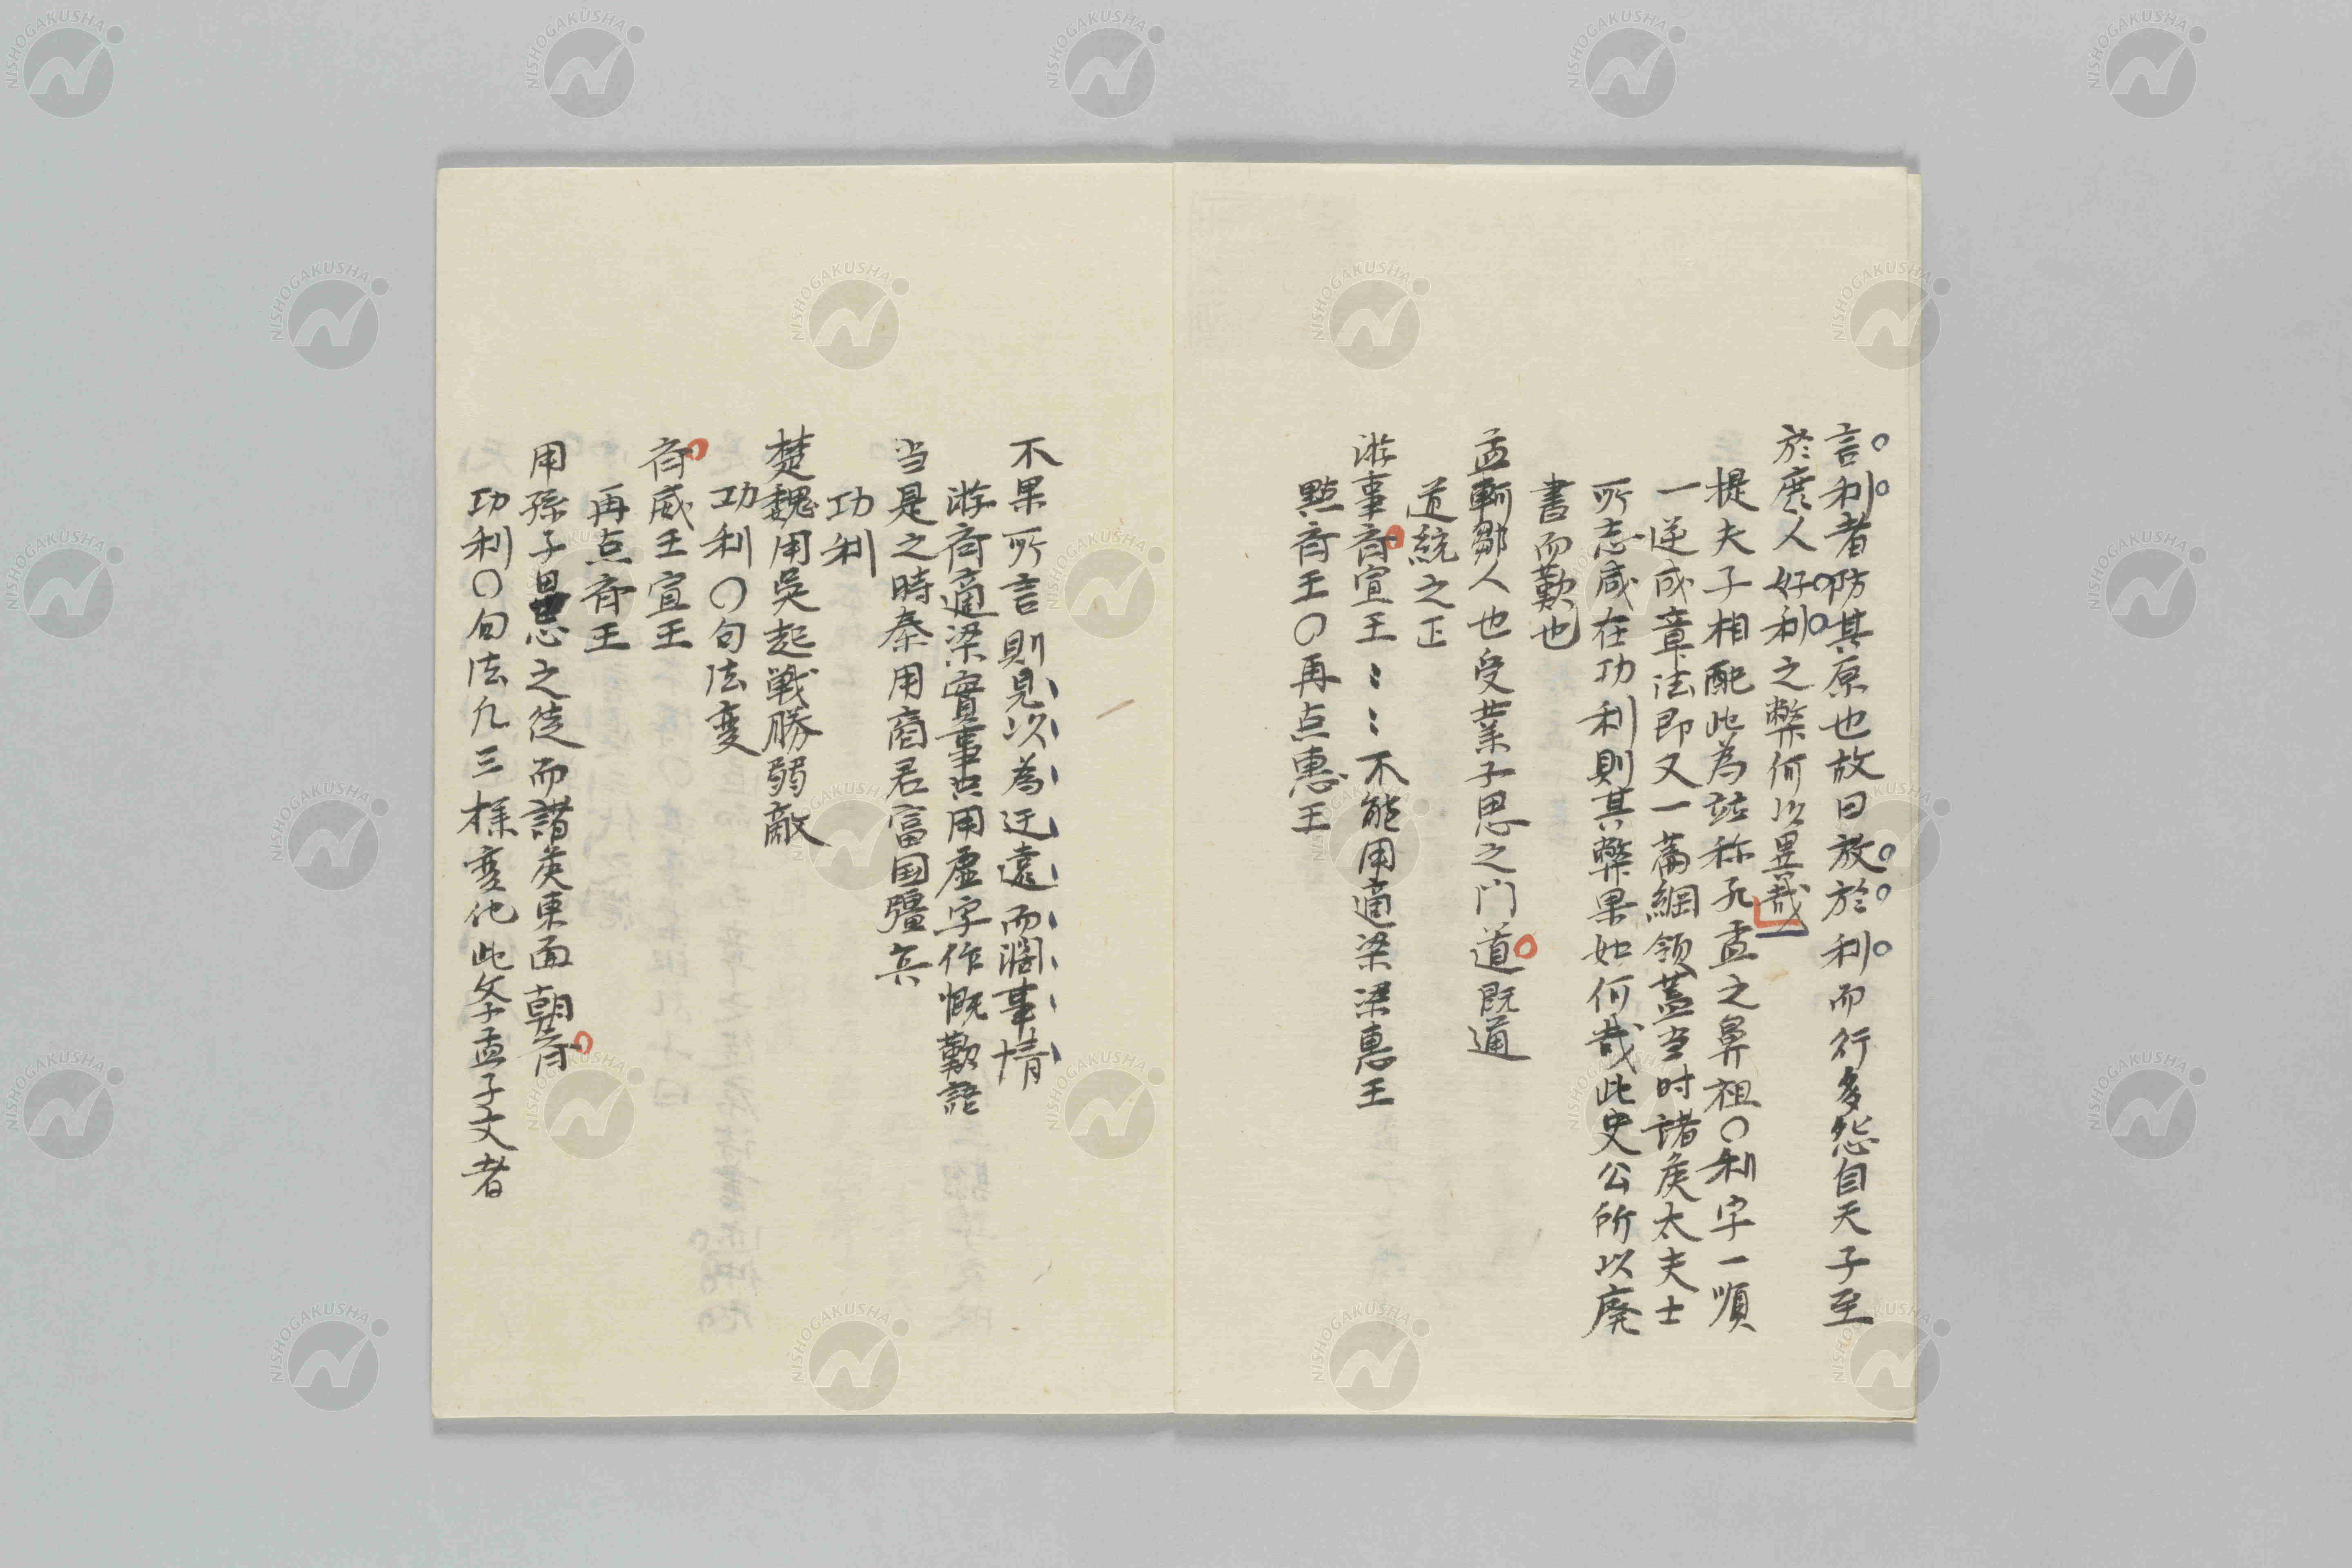 言利者防其原也故曰放於利而行多怨自天子至
於庶人好利之弊何以異哉
提夫子相配此為竝称孔孟之鼻祖〇利字一順
一逆成章法即又一篇綱領蓋当时諸矦太夫士
所志咸在功利則其弊果如何哉此史公所以廃
書而歎也
孟軻鄒人也受業子思之门道既通
道統之正
游事斉宣王〻〻不能用適梁梁惠王
點斉王〇再点惠王
不果所言則見以為迂遠而闊事情
游斉適梁實事只用虚字作慨歎語
当是之時秦用商君富国彊兵
功利
楚魏用吳起戦勝弱敵
功利〇句法変
斉威王宣王
再点斉王
用孫子忌之徒而諸矦東面朝斉
功利〇句法凡三様変化此夅孟子文者
NISHOGAKUSHA